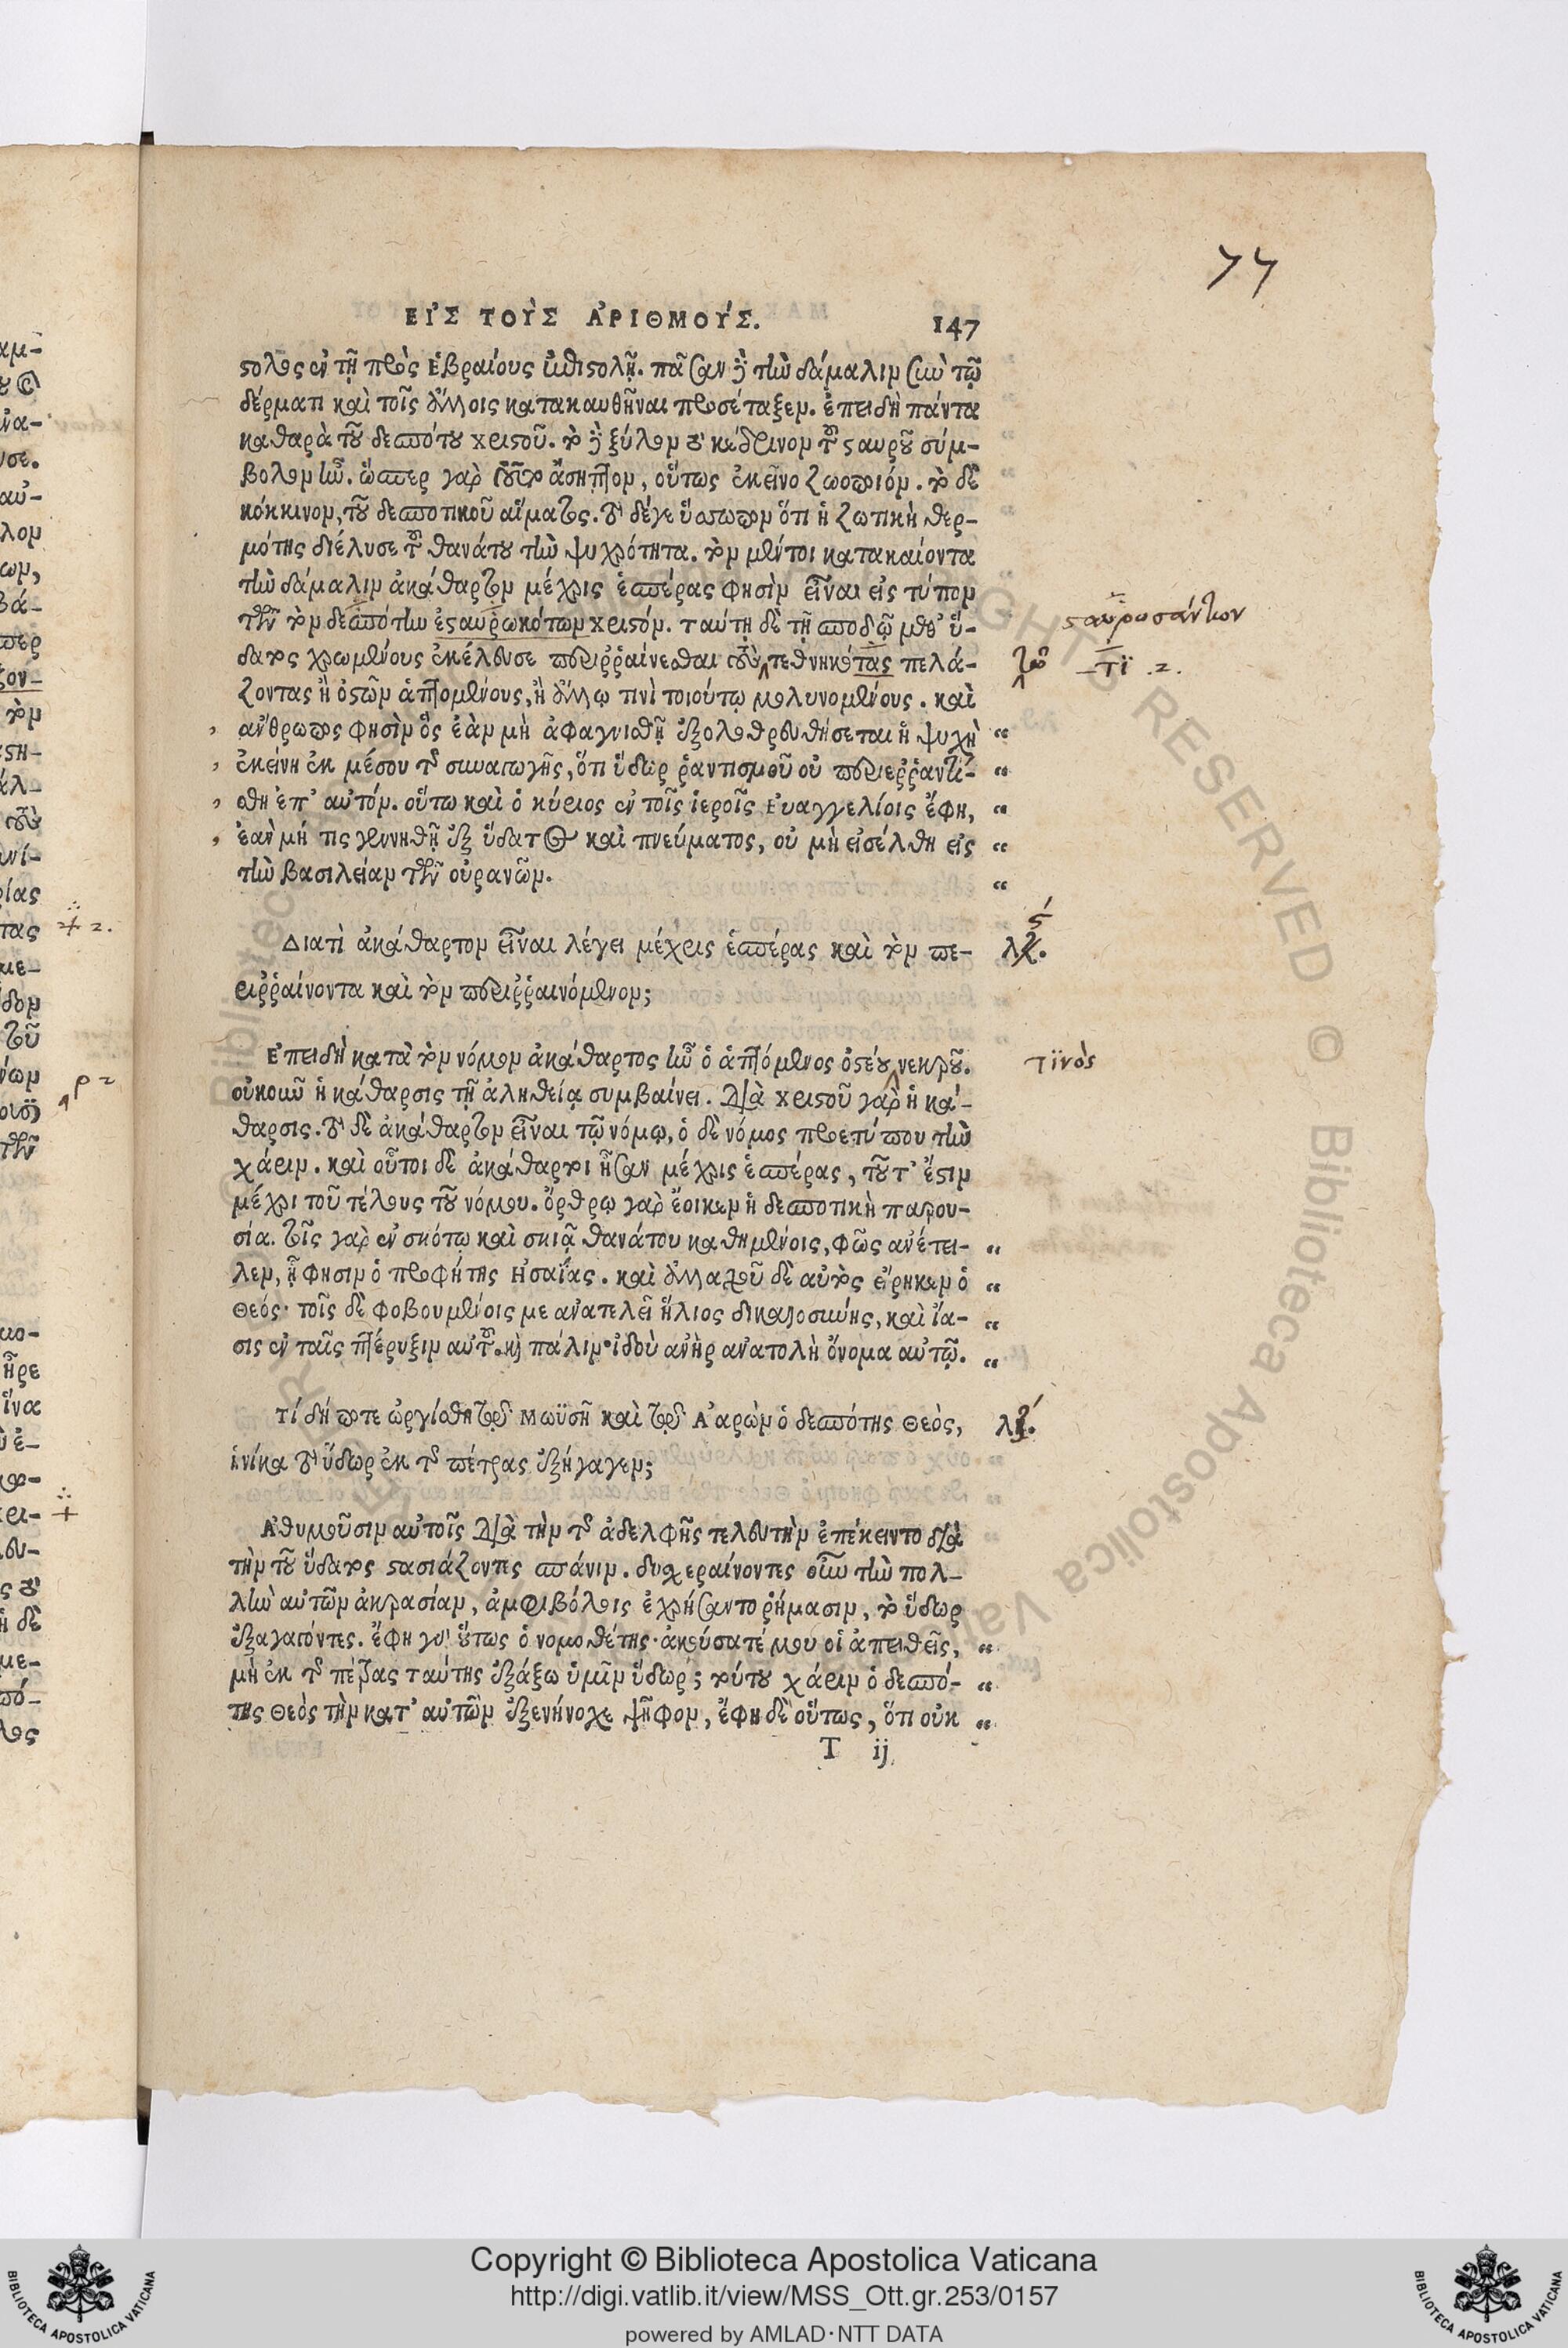 77
ΕἸΣ ΤΟῪΣ ἈΡΙΘΜΟΎΣ. 147
στολος ἐν τῇ πρὸς Ἑβραίους ἐπιστολῇ. πᾶσαν δὲ τὴν δάμαλιν σὺν τῷ
δέρματι καὶ τοῖς ἄλλοις κατακαυθῆναι προσέταξεν. ἐπειδὴ πάντα
καθαρὰ τοῦ δεσπότου χριστοῦ. τὸ δὲ ξύλον τὸ κέδρινον τοῦ σταυροῦ σύμ-
βολον ἦν. ὥσπερ γὰρ τοῦτο ἄσηπτον, οὕτως ἐκεῖνο ζωοποιόν. τὸ δὲ
κόκκινον, τοῦ δεσποτικοῦ αἵματος. τὸ δέγε ὕσσωπον ὅτι ἡ ζωτικὴ θερ-
μότης διέλυσε τοῦ θανάτου τὴν ψυχρότητα. τὸν μέντοι κατακαίοντα
τὴν δάμαλιν ἀκάθαρτον μέχρις ἑσπέρας φησὶν εἶναι εἰς τύπον
τῶν τὸν δεσπότην ἐσταυρωκότων χριστόν. ταύτῃ δὲ τῇ σποδῷ μεθ' ὕ-
σταυρωσάντων
δατος χρωμένους ἐκέλευσε περιῤῥαίνεσθαι τοὺς τεθνηκότας πελά-
τῶ -τι .2.
ζοντας ἢ ὀστῶν ἁπτομένους, ἢ ἄλλῳ τινὶ τοιούτῳ μολυνομένους. καὶ
ἄνθρωπος φησὶν ὃς ἐὰν μὴ ἀφαγνισθῇ ἐξολοθρευθήσεται ἡ ψυχὴ “
ἐκείνη ἐκ μέσου τῆς συναγωγῆς, ὅτι ὕδωρ ῥαντισμοῦ οὐ περιεῤῥαντί- “
σθη ἐπ' αὐτόν. οὕτω καὶ ὁ κύριος ἐν τοῖς ἱεροῖς Εὐαγγελίοις ἔφη, “
ἐὰν μή τις γεννηθῇ ἐξ ὕδατος καὶ πνεύματος, οὐ μὴ εἰσέλθη εἰς “
τὴν βασιλείαν τῶν οὐρανῶν. “
Διατὶ ἀκάθαρτον εἶναι λέγει μέχρις ἑσπέρας καὶ τὸν πε-
ριῤῥαίνοντα καὶ τὸν περιῤῥαινόμενον;
Ἐπειδὴ κατὰ τὸν νόμον ἀκάθαρτος ἦν ὁ ἁπτόμενος ὀστέου νεκροῦ. τινὸς
οὐκοῦν ἡ κάθαρσις τῇ ἀληθείᾳ συμβαίνει. διὰ χριστοῦ γὰρ ἡ κά-
θαρσις. τὸ δὲ ἀκάθαρτον εἶναι τῷ νόμῳ, ὁ δὲ νόμος προετύπου τὴν
χάριν. καὶ οὗτοι δὲ ἀκάθαρτοι ἦσαν μέχρις ἑσπέρας, τοῦτ' ἔστιν
μέχρι τοῦ τέλους τοῦ νόμου. ὄρθρῳ γὰρ ἔοικεν ἡ δεσποτικὴ παρου-
σία. τοῖς γὰρ ἐν σκότῳ καὶ σκιᾷ θανάτου καθημένοις, φῶς ἀνέτει- “
λεν, ᾗ φησιν ὁ προφήτης Ἡσαΐας. καὶ ἀλλαχοῦ δὲ αὐτὸς εἴρηκεν ὁ “
Θεός· τοῖς δὲ φοβουμένοις με ἀνατελεῖ ἥλιος δικαιοσύνης, καὶ ἴα- “
σις ἐν ταῖς πτέρυξιν αὐτοῦ. καὶ πάλιν· ἰδοὺ ἀνὴρ ἀνατολὴ ὄνομα αὐτῷ. “
Τί δήποτε ὠργίσθη τῷ Μωϋσῆ καὶ τῷ Ἀαρὼν ὁ δεσπότης Θεὸς,
ἡνίκα τὸ ὕδωρ ἐκ τῆς πέτρας ἐξήγαγεν;
Ἀθυμοῦσιν αὐτοῖς διὰ τὴν τῆς ἀδελφῆς τελευτὴν ἐπέκειντο διὰ
τὴν τοῦ ὕδατος στασιάζοντες σπάνιν. δυσχεραίνοντες οὖν τὴν πολ-
λὴν αὐτῶν ἀκρασίαν, ἀμφιβόλοις ἐχρήσαντο ῥήμασιν, τὸ ὕδωρ
ἐξαγαγόντες. ἔφη γὰρ οὕτως ὁ νομοθέτης· ἀκούσατέ μου οἱ ἀπειθεῖς, “
μὴ ἐκ τῆς πέτρας ταύτης ἐξάξω ὑμῖν ὕδωρ; τούτου χάριν ὁ δεσπό- “
της Θεὸς τὴν κατ' αὐτῶν ἐξενήνοχε ψῆφον, ἔφη δὲ οὕτως, ὅτι οὐκ “
T ij
Copyright © Biblioteca Apostolica Vaticana
http://digi.vatlib.it/view/MSS_Ott.gr.253/0157
powered by AMLAD·NTT DATA